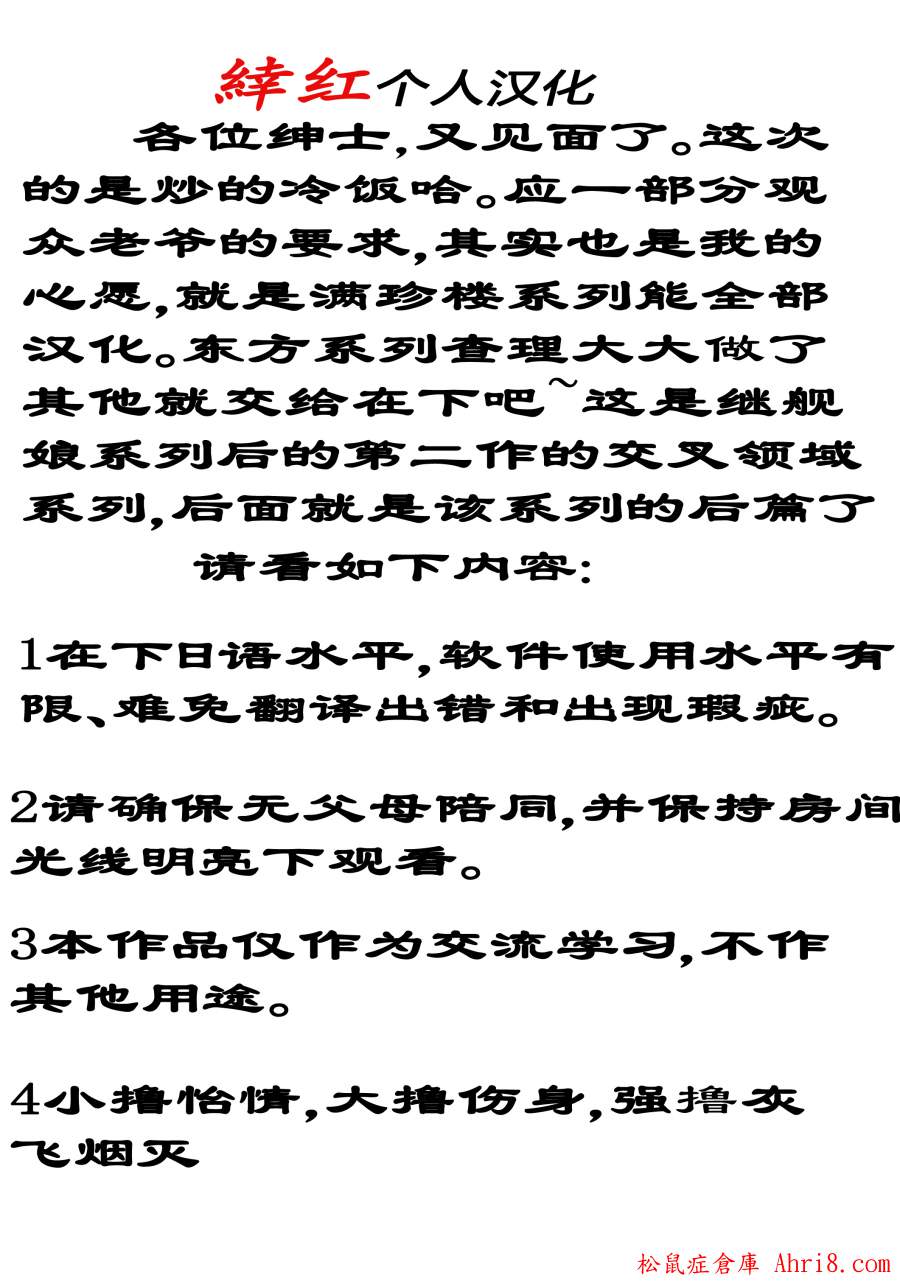 緈红个人汉化
各位绅士,又见面了。这次
的是炒的冷饭哈。应一部分观
众老爷的要求,其实也是我的
心愿,就是满珍楼系列能全部
汉化。东方系列查理大大做了
其他就交给在下吧~这是继舰
娘系列后的第二作的交叉领域
系列,后面就是该系列的后篇了
请看如下内容:
1在下日语水平,软件使用水平有
限、难免翻译出错和出现瑕疵。
2请确保无父母陪同,并保持房间
光线明亮下观看。
3本作品仅作为交流学习,不作
其他用途。
4小撸怡情,大撸伤身,强撸灰
飞烟灭
松鼠症倉庫 Ahri8.com